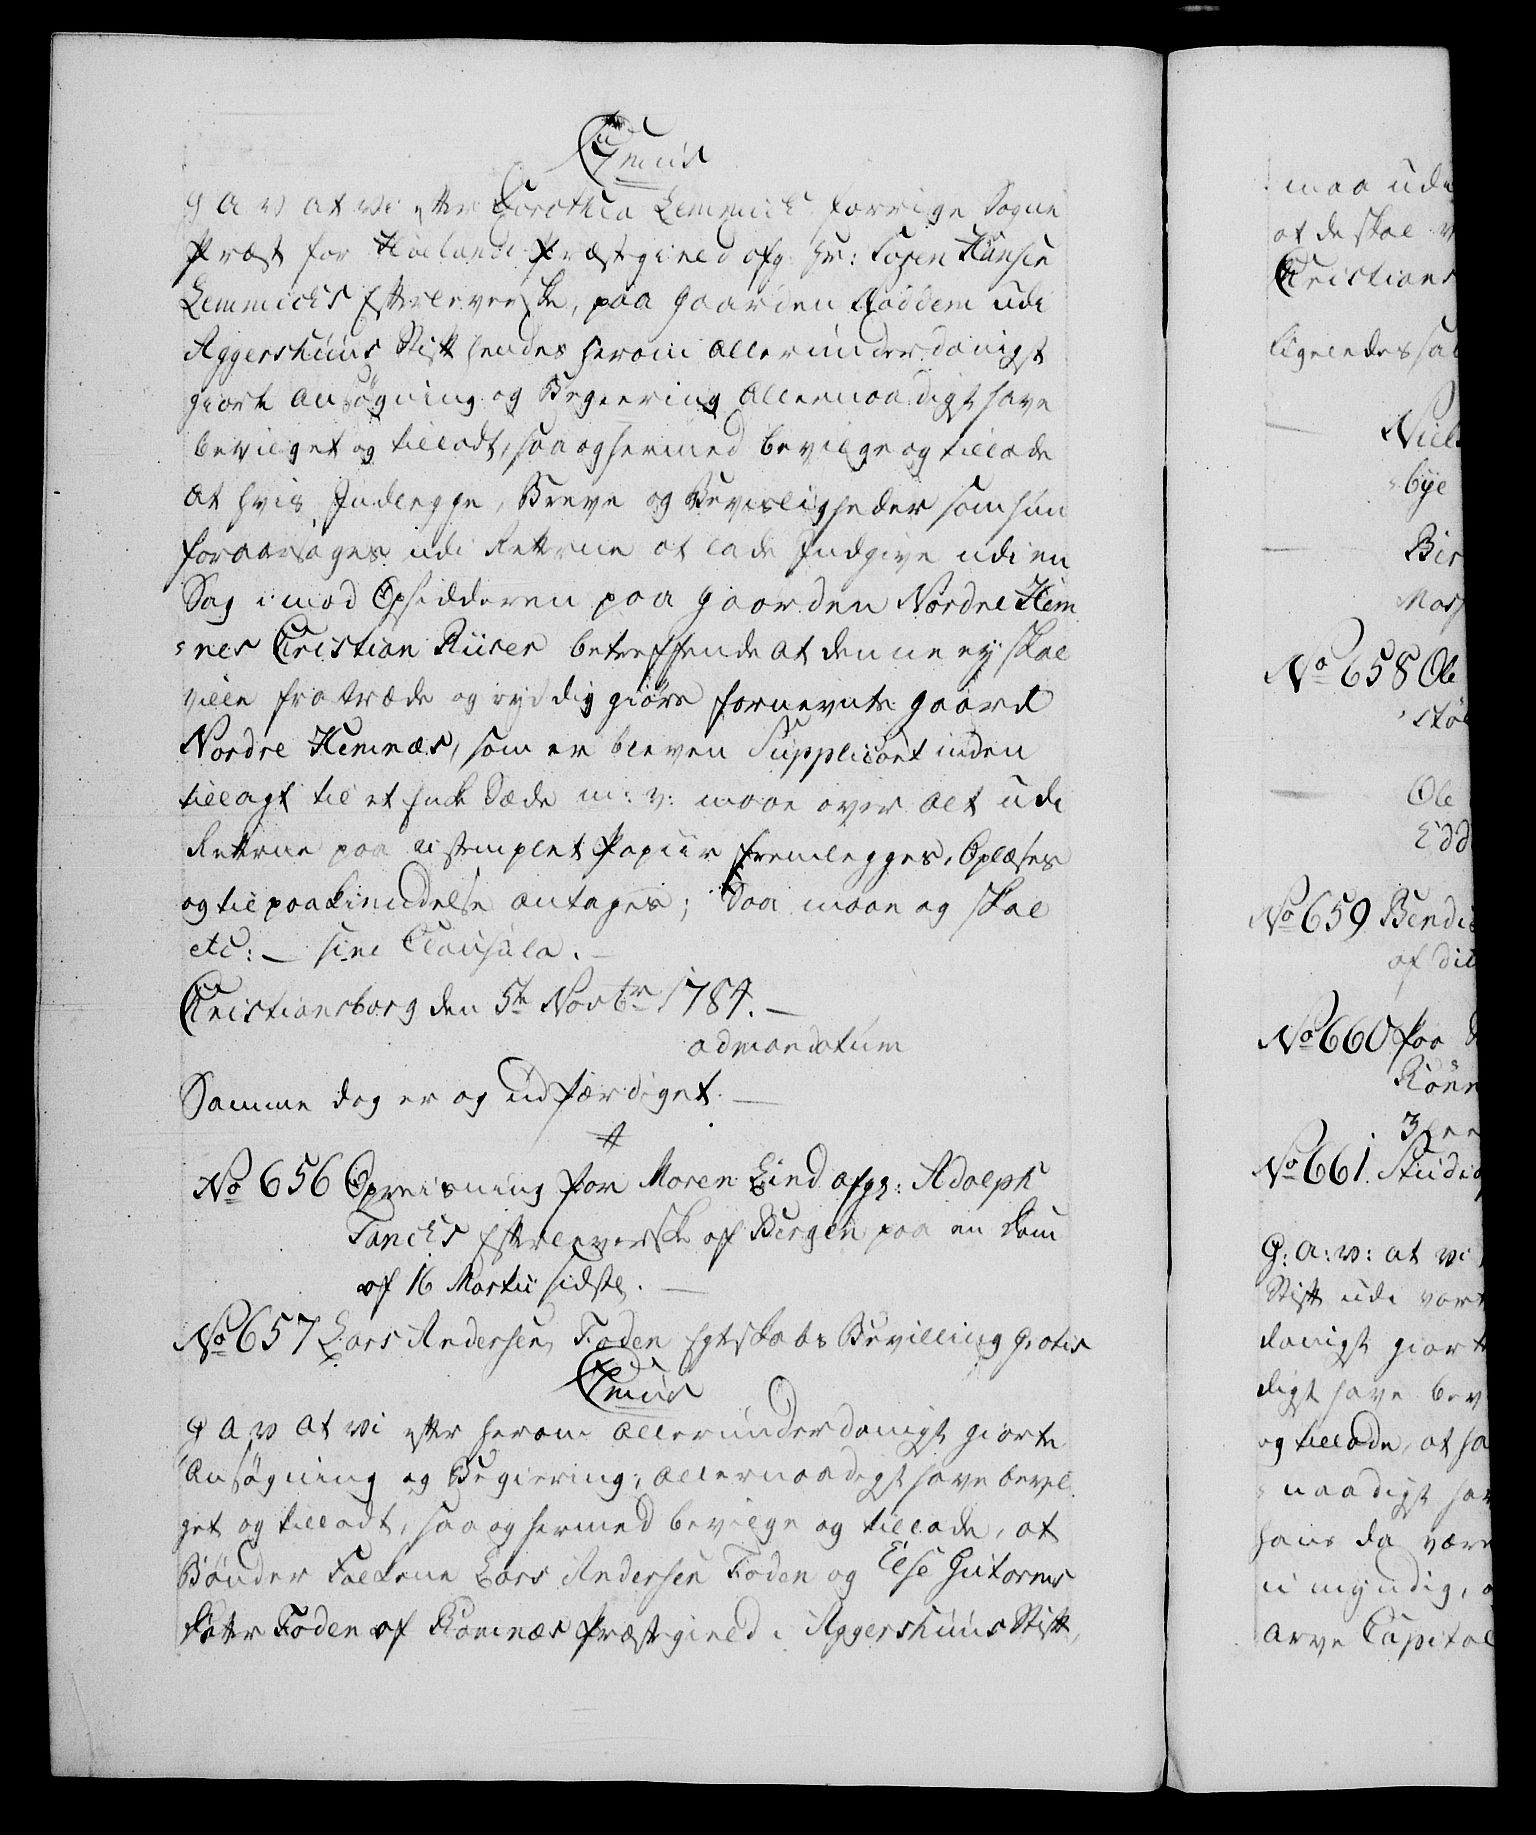 CVmus
G A V At Vi efter Dorothea Lemmich forrige Sogne
Præst for Hølands Præstegield afg: Hr: Søfren Hansen
Lemmichs Efterleverske, paa Gaarden Riddem udi
Aggershuus Stift hendes herom allerunderdanigst
giorte Ansøgning og Begiering Allernaadigst have
bevilget og tilladt, saa og hermed bevilge og tillade
At hvis Indlegge, Breve og Bevisligheder som hun
foraarsages udi Retterne at lade Indgive udi en
Sag imod Opsidderen paa Gaarden Nordre Hem
=nes Christian Riiser betreffende at denne ey skal
ville fratræde og ryddig giøre fornevnte Gaard
Nordre Hemnæs, som er bleven Supplicantinden
tillagt til et Enke Sæde m: v: maae over alt udi
Retterne paa ustemplet Papiir fremlegges, Oplæses
og til paakiendelse antages; Saa maae og skal
etc: — sine Clausula. —
Christiansborg den 5te Novbr 1784. —
ad mandatum
Samme dag er og udfærdiget. —
No 656 Opreisning for Maren Lind afg: Adolph
Tanchs Efterleverske af Bergen paa en Dom
af 16 Martii sidstl. —
No 657 Lars Andersen Foden Egteskabs Bevilling Gratis
CVmus
G A V At Vi efter herom allerunderdanigst giorte
Ansøgning og Begiering, allernaadigst have bevil
get og tilladt, saa og hermed bevilge og tillade, at
Bønder Folkene Lars Andersen Foden og Else Gutorms
Datter Foden af Romnæs Præstegield i Aggershuus Stift,
maa ude
at de skal
Christians
Ligeledes
Niels
bye
No 658 Ole
Ole
Edd
No 659 Bendi
af
No 660 Paa
No 661. Studio
G: A: v: at vi
Stift udi vort
danigst giort
digst have bev
og tillade, at ha
naadigst ha
hans da være
u myndig,
Arve Capital